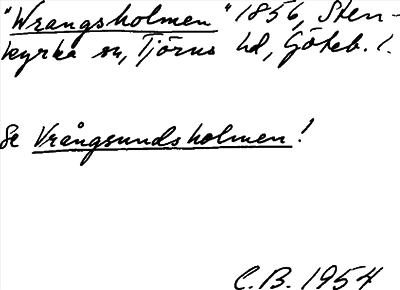 "Wrangsholmen" 1856, Sten-
kyrka sn, Tjörns hd, Göteb. l.
Se Vrångsundsholmen!
C.B. 1954